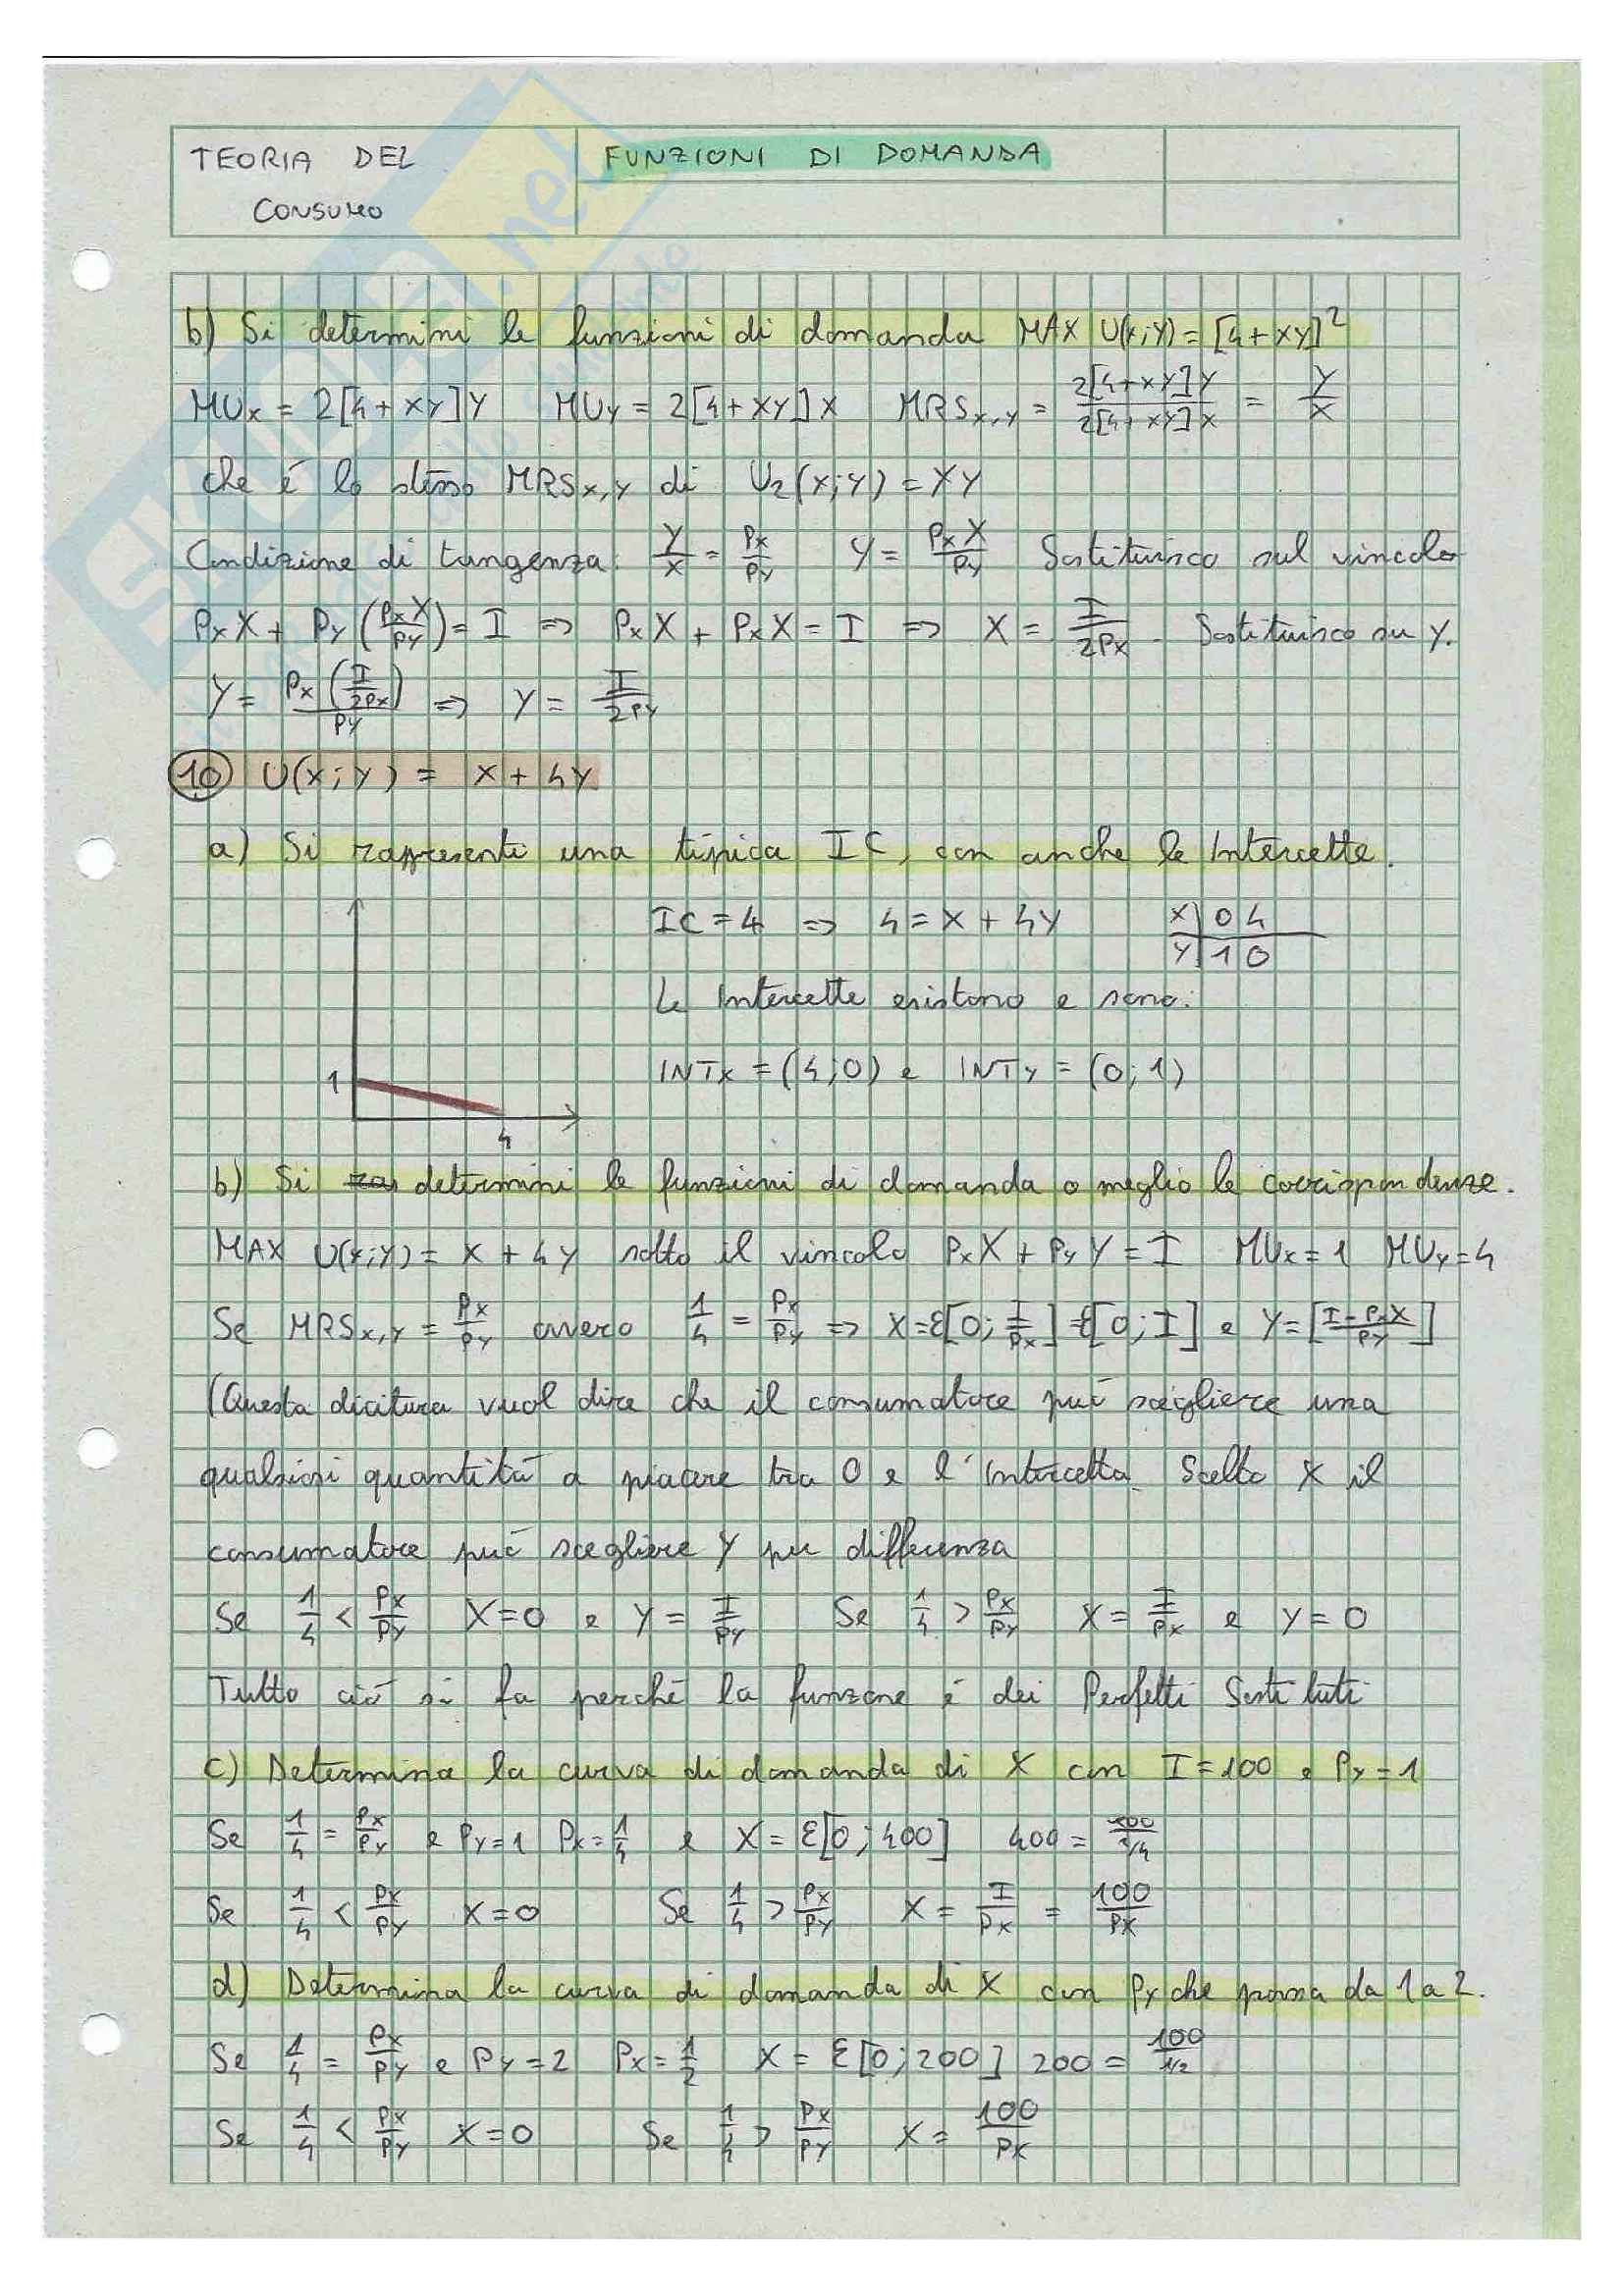 TEORIA DEL CONSUMO
FUNZIONI DI DOMANDA
b) Si determini le funzioni di domanda MAX U(x;y) = [4+XY]²
MUx = 2[4+XY]Y MUy = 2[4+XY]X MRSx,y = 2[4+XY]Y / 2[4+XY]X = Y/X
che è lo stesso MRSx,y di U₂(x;y) = XY
Condizione di tangenza: Y/X = Px/Py Y = PxX/Py Sostituisco sul vincolo
PxX + Py(PxX/Py) = I => PxX + PxX = I => X = I/2Px. Sostituisco su Y.
Y = Px(I/2Px)/Py => Y = I/2Py
10 U(x;y) = X + 4Y
a) Si rappresenti una tipica IC, con anche le Intercette.
IC = 4 => 4 = X + 4Y
X | 0 4
Y | 1 0
Le Intercette esistono e sono:
INTx = (4;0) e INTy = (0;1)
1
4
b) Si determini le funzioni di domanda o meglio le corrispondenze.
MAX U(x;y) = X + 4Y sotto il vincolo PxX + PyY = I MUx = 1 MUy = 4
Se MRSx,y = Px/Py ovvero 1/4 = Px/Py => X = ε[0; I/Px] = ε[0; I] e Y = [I - PxX / Py]
(Questa dicitura vuol dire che il consumatore può scegliere una
qualsiasi quantità a piacere tra 0 e l'intercetta. Scelto X il
consumatore può scegliere Y per differenza
Se 1/4 < Px/Py X = 0 e Y = I/Py Se 1/4 > Px/Py X = I/Px e Y = 0
Tutto ciò si fa perchè la funzone è dei Perfetti Sostituti
c) Determina la curva di domanda di X con I = 100 e Py = 1
Se 1/4 = Px/Py e Py = 1 Px = 1/4 e X = ε[0; 400] 400 = 100/1/4
Se 1/4 < Px/Py X = 0 Se 1/4 > Px/Py X = I/Px = 100/Px
d) Determina la curva di domanda di X con Py che passa da 1 a 2.
Se 1/4 = Px/Py e Py = 2 Px = 1/2 X = ε[0; 200] 200 = 100/1/2
Se 1/4 < Px/Py X = 0 Se 1/4 > Px/Py X = 100/Px